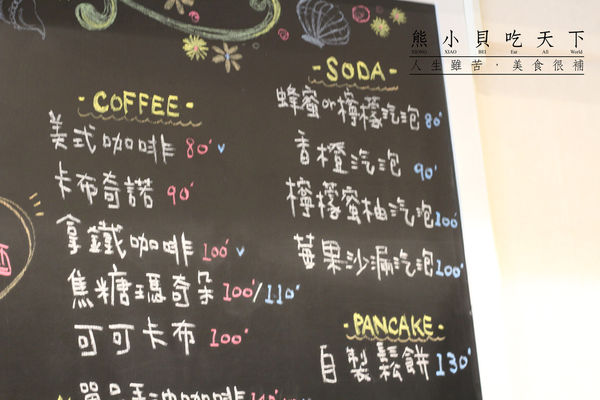 熊小貝吃天下
XIONG XIAO BEI Eat All World
人生雖苦·美食很補
-COFFEE-
美式咖啡 80' v
卡布奇諾 90'
拿鐵咖啡 100' v
焦糖瑪奇朵 100'/110'
可可卡布 100'
單品手沖咖啡 140'
酒
-SODA-
蜂蜜or檸檬汽泡 80'
香橙汽泡 90'
檸檬蜜柚汽泡 100'
莓果沙漏汽泡 100'
-PANCAKE-
自製鬆餅 130'